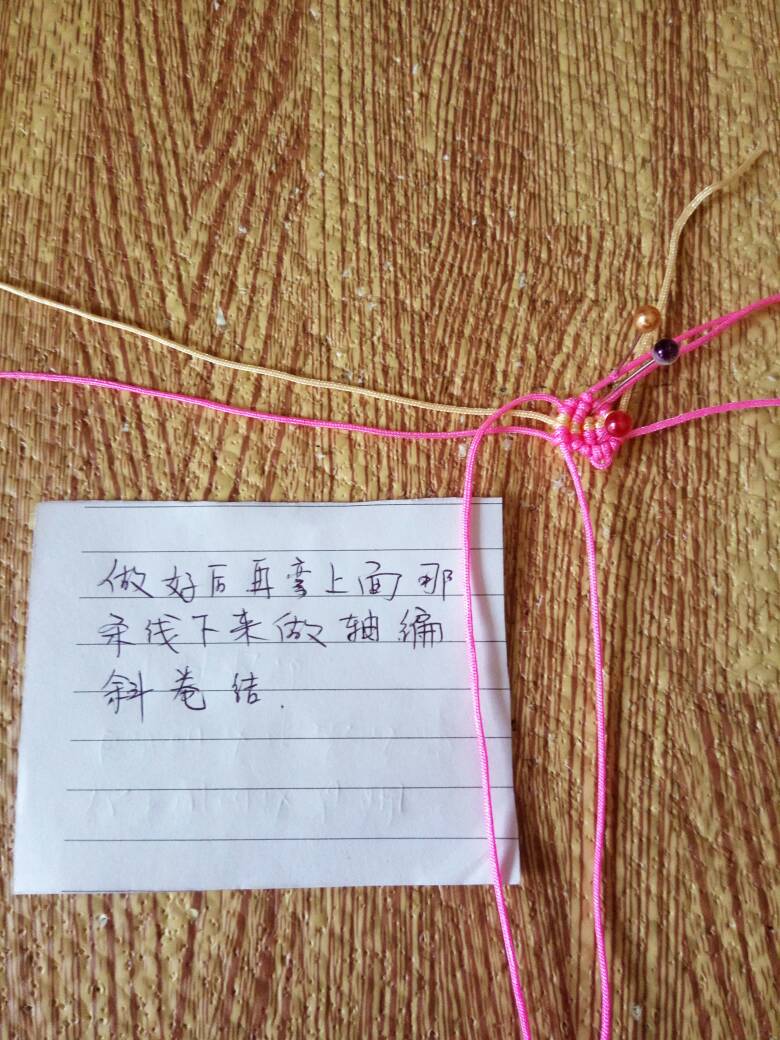 做好后再弯上面那
条线下来做轴编
斜卷结.